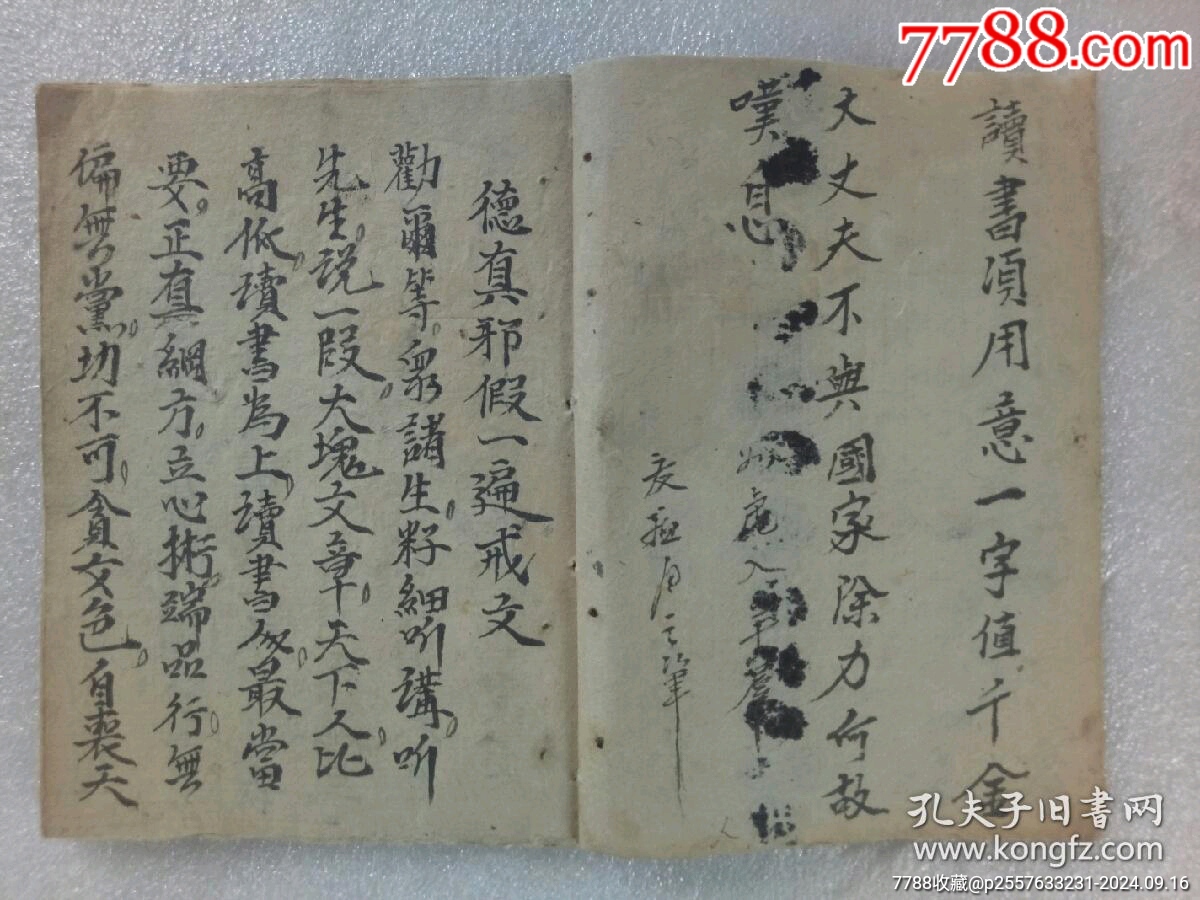 7788.com
讀書須用意一字值千金
大丈夫不與國家除力何故
嘆息
德真邪假一遍戒文
勸爾等。眾諸生。籽細听講。听
先生。説一段。大塊文章。天下人比
高低。瓄書為上。瓄書
最當
要。正真綱方。立心術。端品行。無
偏無黨。切不可。貪女色。自喪天
孔夫子旧书网
www.kongfz.com
7788收藏@p2557633231-2024.09.16